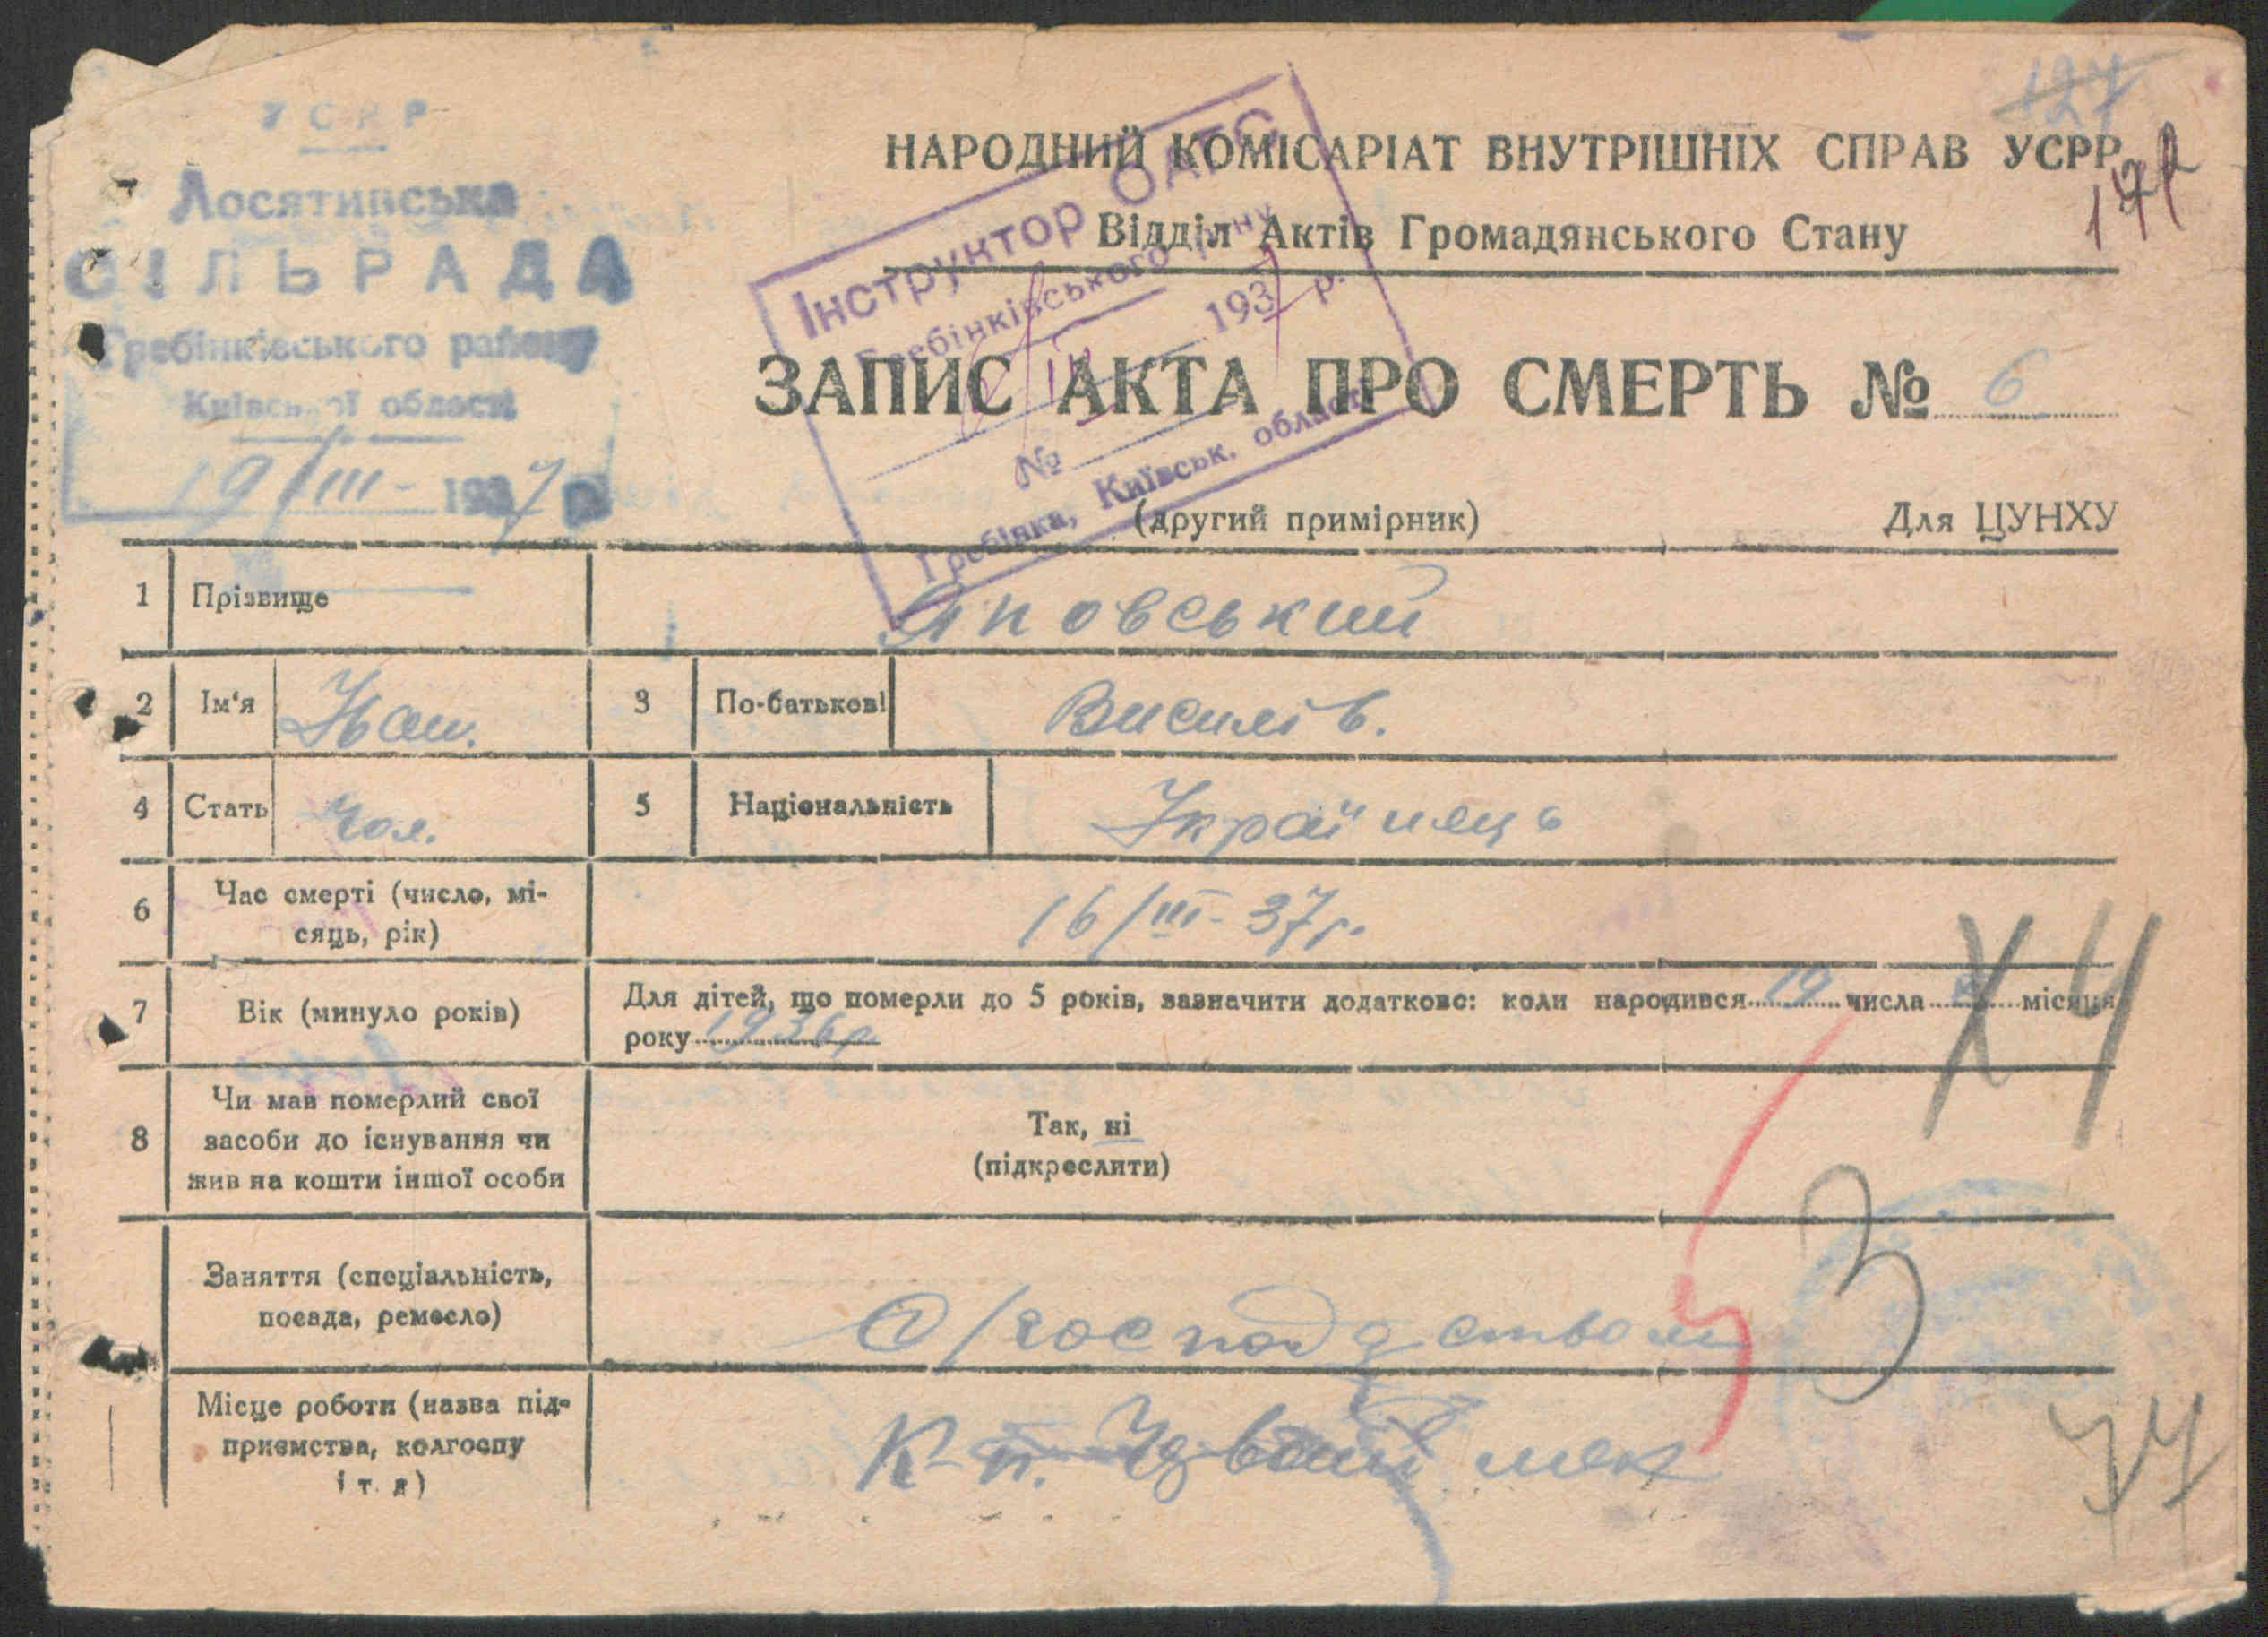 УСРР
Лосятинська
СІЛЬРАДА
Гребінківського району
Київської області
19/III - 1937 р.
127
НАРОДНИЙ КОМІСАРІАТ ВНУТРІШНІХ СПРАВ УСРР
Відділ Актів Громадянського Стану
Інструктор ОАГС
Гребінківського р-ну
1937 р.
№
Гребінка, Київськ. області
ЗАПИС АКТА ПРО СМЕРТЬ № 6
(другий примірник) Для ЦУНХУ
1 Прізвище Яновський
2 Ім'я Іван. 3 По-батькові Василів.
4 Стать Чол. 5 Національність Українець
6 Час смерті (число, мі-
сяць, рік) 16/III-37р.
7 Вік (минуло років) Для дітей, що померли до 5 років, зазначити додатково: коли народився 19 числа місяця
року 1936р
8 Чи мав померлий свої
засоби до існування чи
жив на кошти іншої особи
Так, ні
(підкреслити)
Заняття (спеціальність,
посада, ремесло)
Місце роботи (назва під-
приємства, колгоспу
і т. д)
3